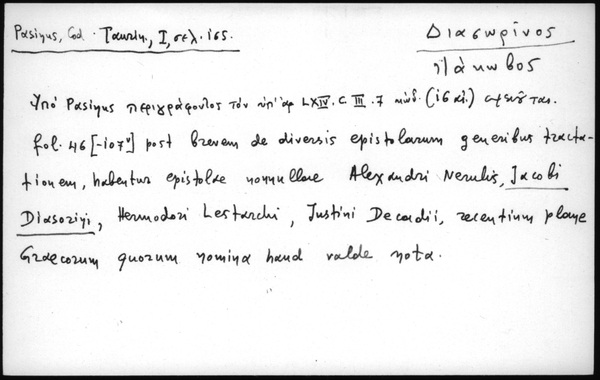 Pasinus, Cod. Ταυριν., I, σελ. 165.
Διασωρῖνος
Ἰάκωβος
Ὑπὸ Pasinus περιγράφοντος τὸν ὑπ' ἀρ LXIV. C. III. 7 κώδ. (16 αἰ.)
fol. 46 [-107ᵛ] post brevem de diversis epistolarum generibus tracta-
tionem, habentur epistolae nonnullae Alexandri Nerulis, Jacobi
Diasorini, Hermodori Lestarchi, Justini Decadii, recentium plane
Graecorum quorum nomina haud valde nota.